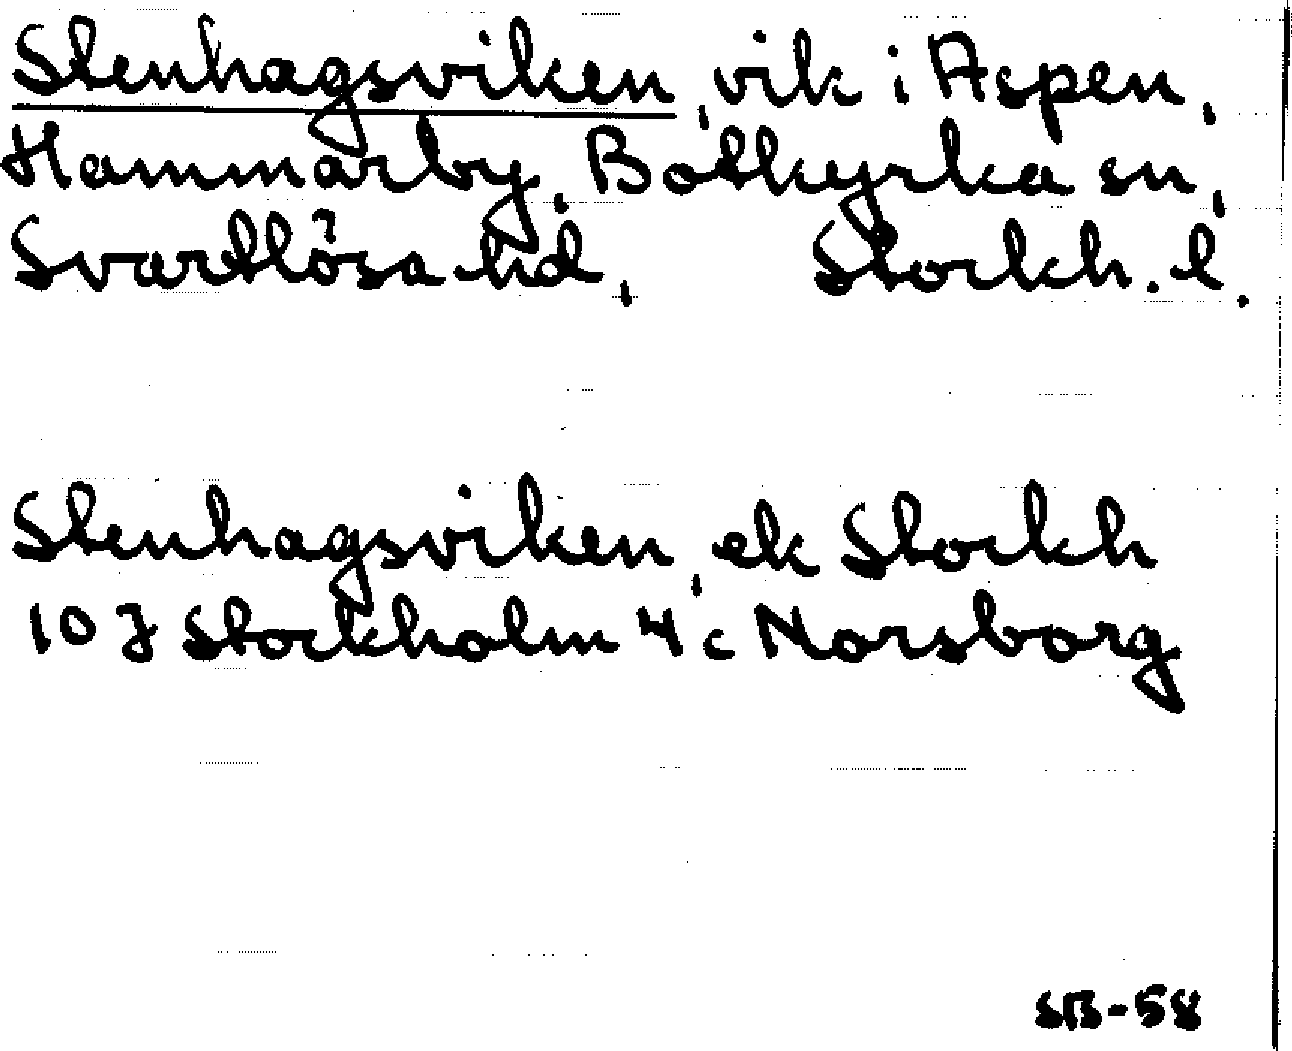 Stenhagsviken, vik i Aspen,
Hammarby, Botkyrka sn,
Svartlösa hd, Stockh. l.
Stenhagsviken, ek Stockh
10 J Stockholm 4 c Norsborg
SB-58